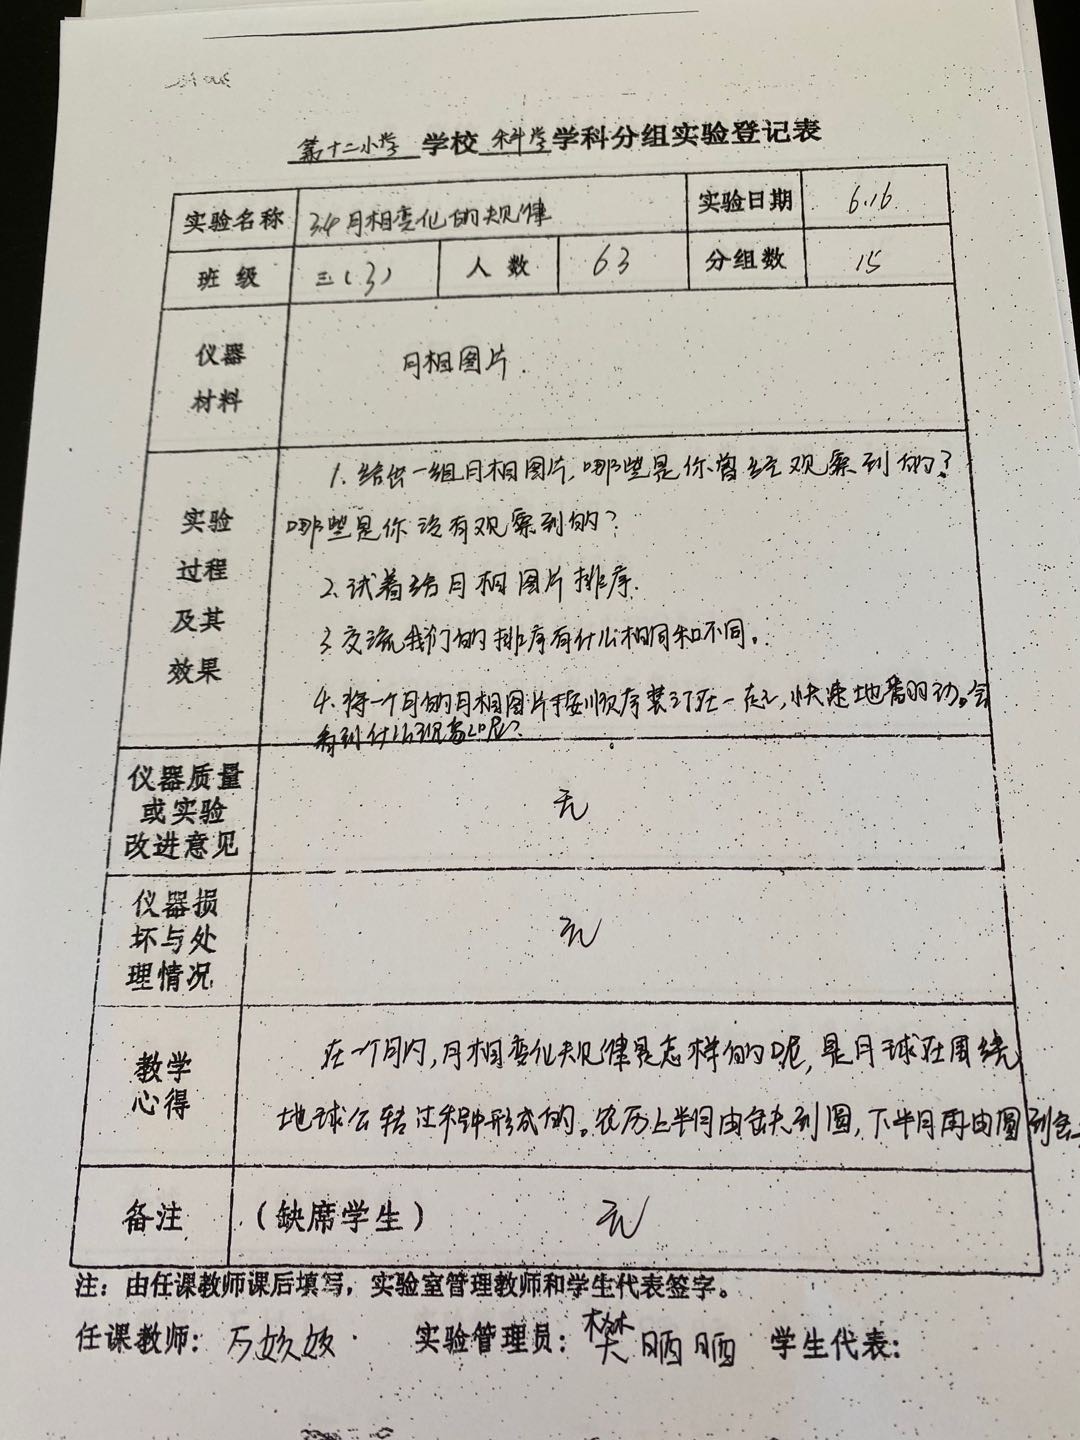 第十二小学 学校 科学 学科分组实验登记表
实验名称 34月相变化的规律 实验日期 6.16
班 级 三(3) 人 数 63 分组数 15
仪器
材料
月相图片.
实验
过程
及其
效果
1.给出一组月相图片,哪些是你曾经观察到的?
哪些是你没有观察到的?
2.试着给月相图片排序.
3.交流我们的排序有什么相同和不同。
4.将一个月的月相图片按顺序装订在一起,快速地翻动。会
看到什么现象呢?
仪器质量
或实验
改进意见
无
仪器损
坏与处
理情况
无
教学
心得
在一个月内,月相变化规律是怎样的呢,是月球在围绕
地球公转过程钟形成的。农历上半月由缺到圆,下半月再由圆到
备注 (缺席学生) 无
注:由任课教师课后填写,实验室管理教师和学生代表签字。
任课教师: 万 实验管理员: 樊晒晒 学生代表: